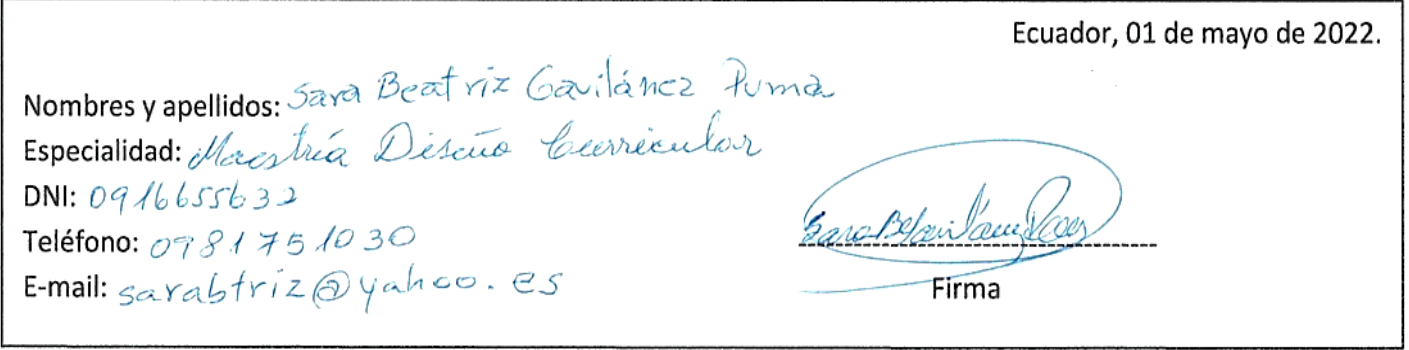 Ecuador, 01 de mayo de 2022.
Nombres y apellidos: Sara Beatriz Gavilánez Puma
Especialidad: Maestría Diseño Curricular
DNI: 0916655632
Teléfono: 0981751030
E-mail: sarabtriz@yahoo.es
Firma